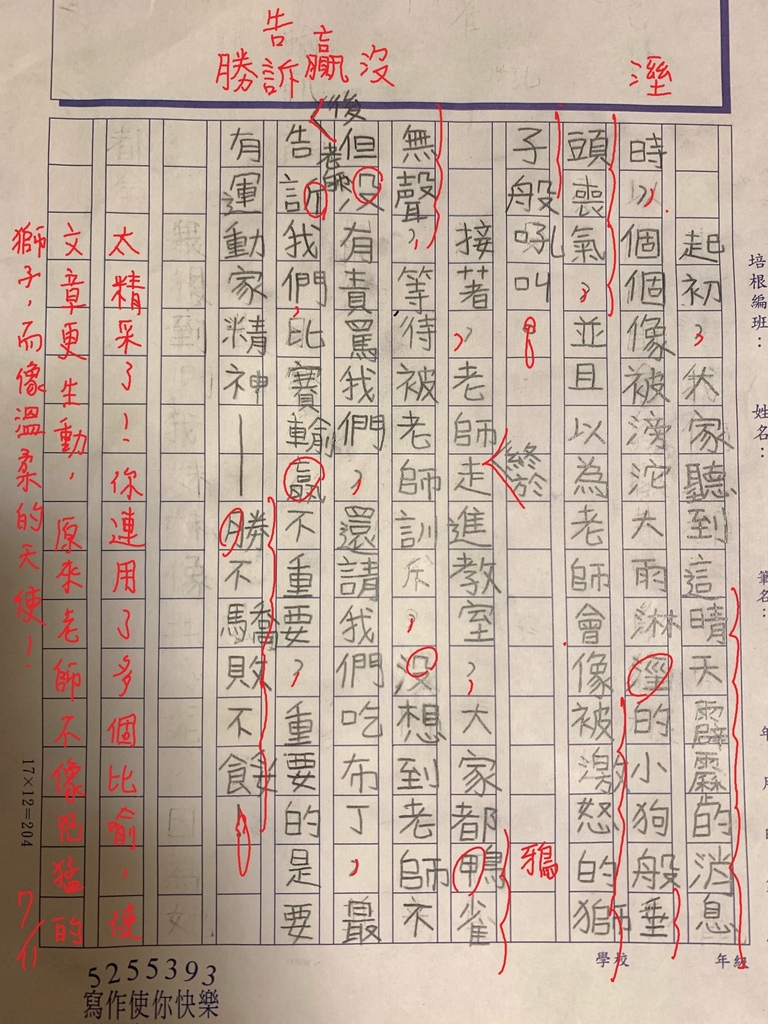 告
勝訴贏沒
溼
起初，大家聽到這晴天霹靂的消息
時，個個像被滂沱大雨淋溼的小狗般垂
頭喪氣，並且以為老師會像被激怒的獅
子般吼叫。
接著，老師走進教室，大家都鴨雀
終於
鴉
無聲，等待被老師訓斥，沒想到老師不
但沒有責罵我們，還請我們吃布丁，最
後
老師
告訴我們，比賽輸贏不重要，重要的是要
有運動家精神——勝不驕敗不餒。
太精采了！你連用了多個比喻，使
文章更生動，原來老師不像兇猛的
獅子，而像溫柔的天使！
7/11
培根編班：
姓名：
筆名：
年 月 日
學校
年級
17×12=204
5255393
寫作使你快樂